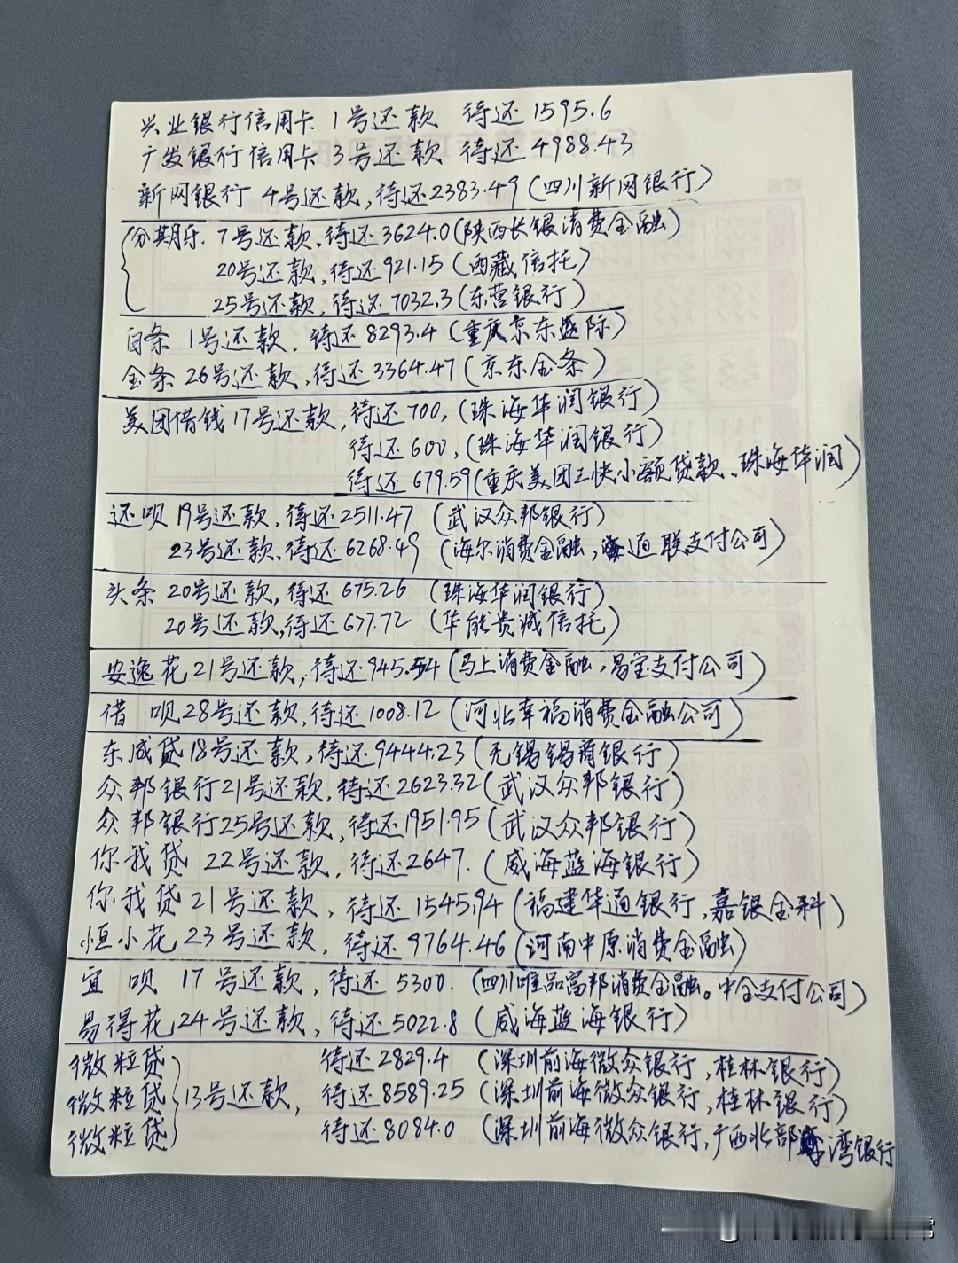 兴业银行信用卡 1号还款 待还1595.6
广发银行信用卡 3号还款 待还4988.43
新网银行 4号还款,待还2383.49(四川新网银行)
分期乐 7号还款,待还3624.0(陕西长银消费金融)
20号还款,待还921.15(西藏信托)
25号还款,待还7032.3(东营银行)
白条 1号还款. 待还8293.4(重庆京东盛际)
金条26号还款,待还3364.47(京东金条)
美团借钱17号还款,待还700,(珠海华润银行)
待还600,(珠海华润银行)
待还679.59(重庆美团三快小额贷款、珠海华润)
还呗19号还款,待还2511.47 (武汉众邦银行)
23号还款、待还6268.49 (海尔消费金融,通联支付公司)
头条 20号还款,待还675.26 (珠海华润银行)
20号还款,待还677.72 (华能贵诚信托)
安逸花21号还款,待还945.54(马上消费金融,易宝支付公司)
借呗28号还款,待还1008.12 (河北幸福消费金融公司)
东咸贷18号还款,待还9444.23(无锡锡商银行)
众邦银行21号还款,待还2623.32(武汉众邦银行)
众邦银行25号还款,待还1951.95(武汉众邦银行)
你我贷 22号还款,待还2647. (威海蓝海银行)
你我贷21号还款,待还1545.94(福建华通银行,嘉银金科)
恒小花23号还款,待还9764.46(河南中原消费金融)
宜呗 17号还款,待还5300.(四川唯品富邦消费金融。中金支付公司)
易得花24号还款,待还5022.8(威海蓝海银行)
微粒贷 待还2829.4 (深圳前海微众银行,桂林银行)
微粒贷 13号还款, 待还8589.25 (深圳前海微众银行,桂林银行)
微粒贷 待还8084.0 (深圳前海微众银行,广西北部湾银行